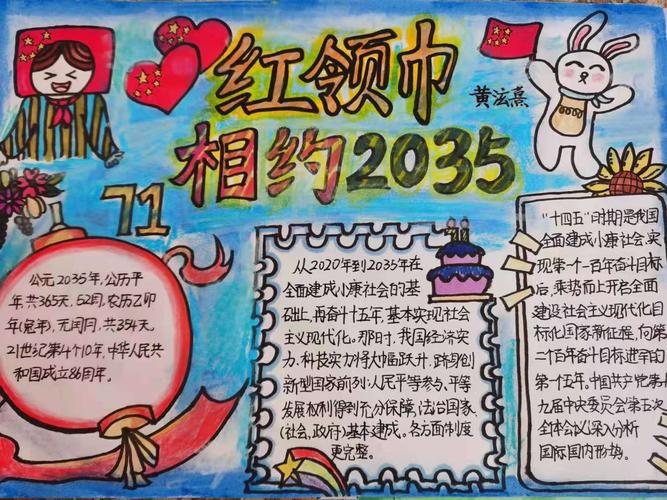 红领巾
相约2035
黄泫熹
71
公元2035年,公历平
年,共365天,52周,农历乙卯
年(兔年),无闰月,共354天。
21世纪第4个10年,中华人民共
和国成立86周年。
从2020年到2035年在
全面建成小康社会的基
础上,再奋斗十五年,基本实现社会
主义现代化。那时,我国经济实
力、科技实力将大幅跃升,跻身创
新型国家前列;人民平等参与、平等
发展权利得到充分保障,法治国家
(社会,政府)基本建成。各方面制度
更完整。
"十四五"时期是我国
全面建成小康社会,实
现第一个一百年奋斗目标
后,乘势而上开启全面
建设社会主义现代化目
标化国家新征程,向第
二个百年奋斗目标进军的
第一个五年。中国共产党第十
九届中央委员会第五次
全体会议深入分析
国际国内形势。